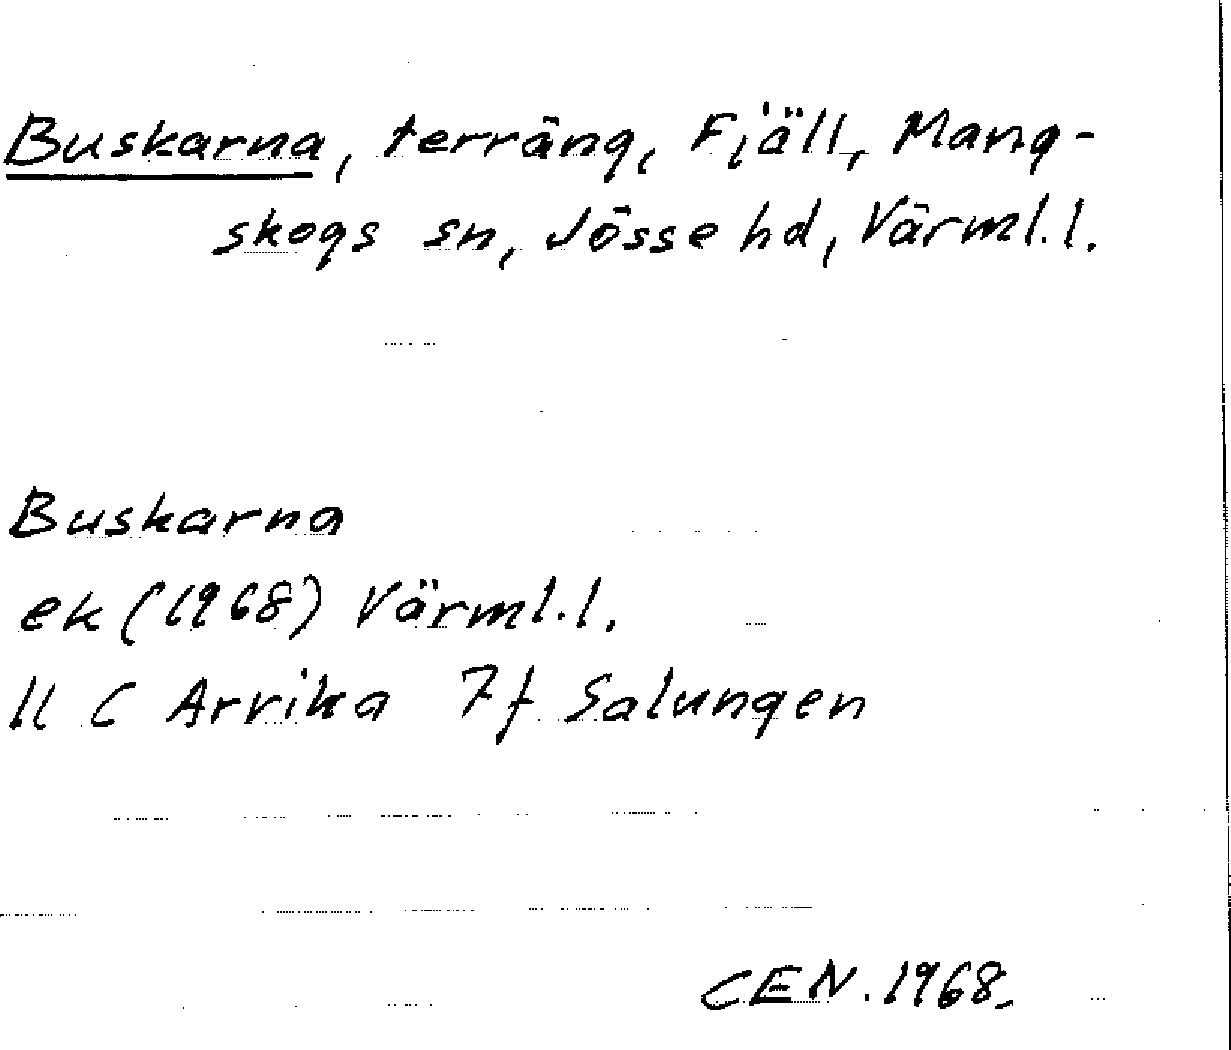 Buskarna, terräng, Fjäll, Mang-
skogs sn, Jösse hd, Värml. l.
Buskarna
ek (1968) Värml. l.
11 C Arvika 7f Salungen
CEN. 1968.